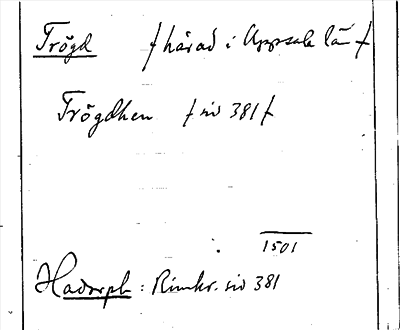 Trögd /härad i Uppsala län/
Trögdhen /sid 381/
1501
Hadorph : Rimkr. sid 381